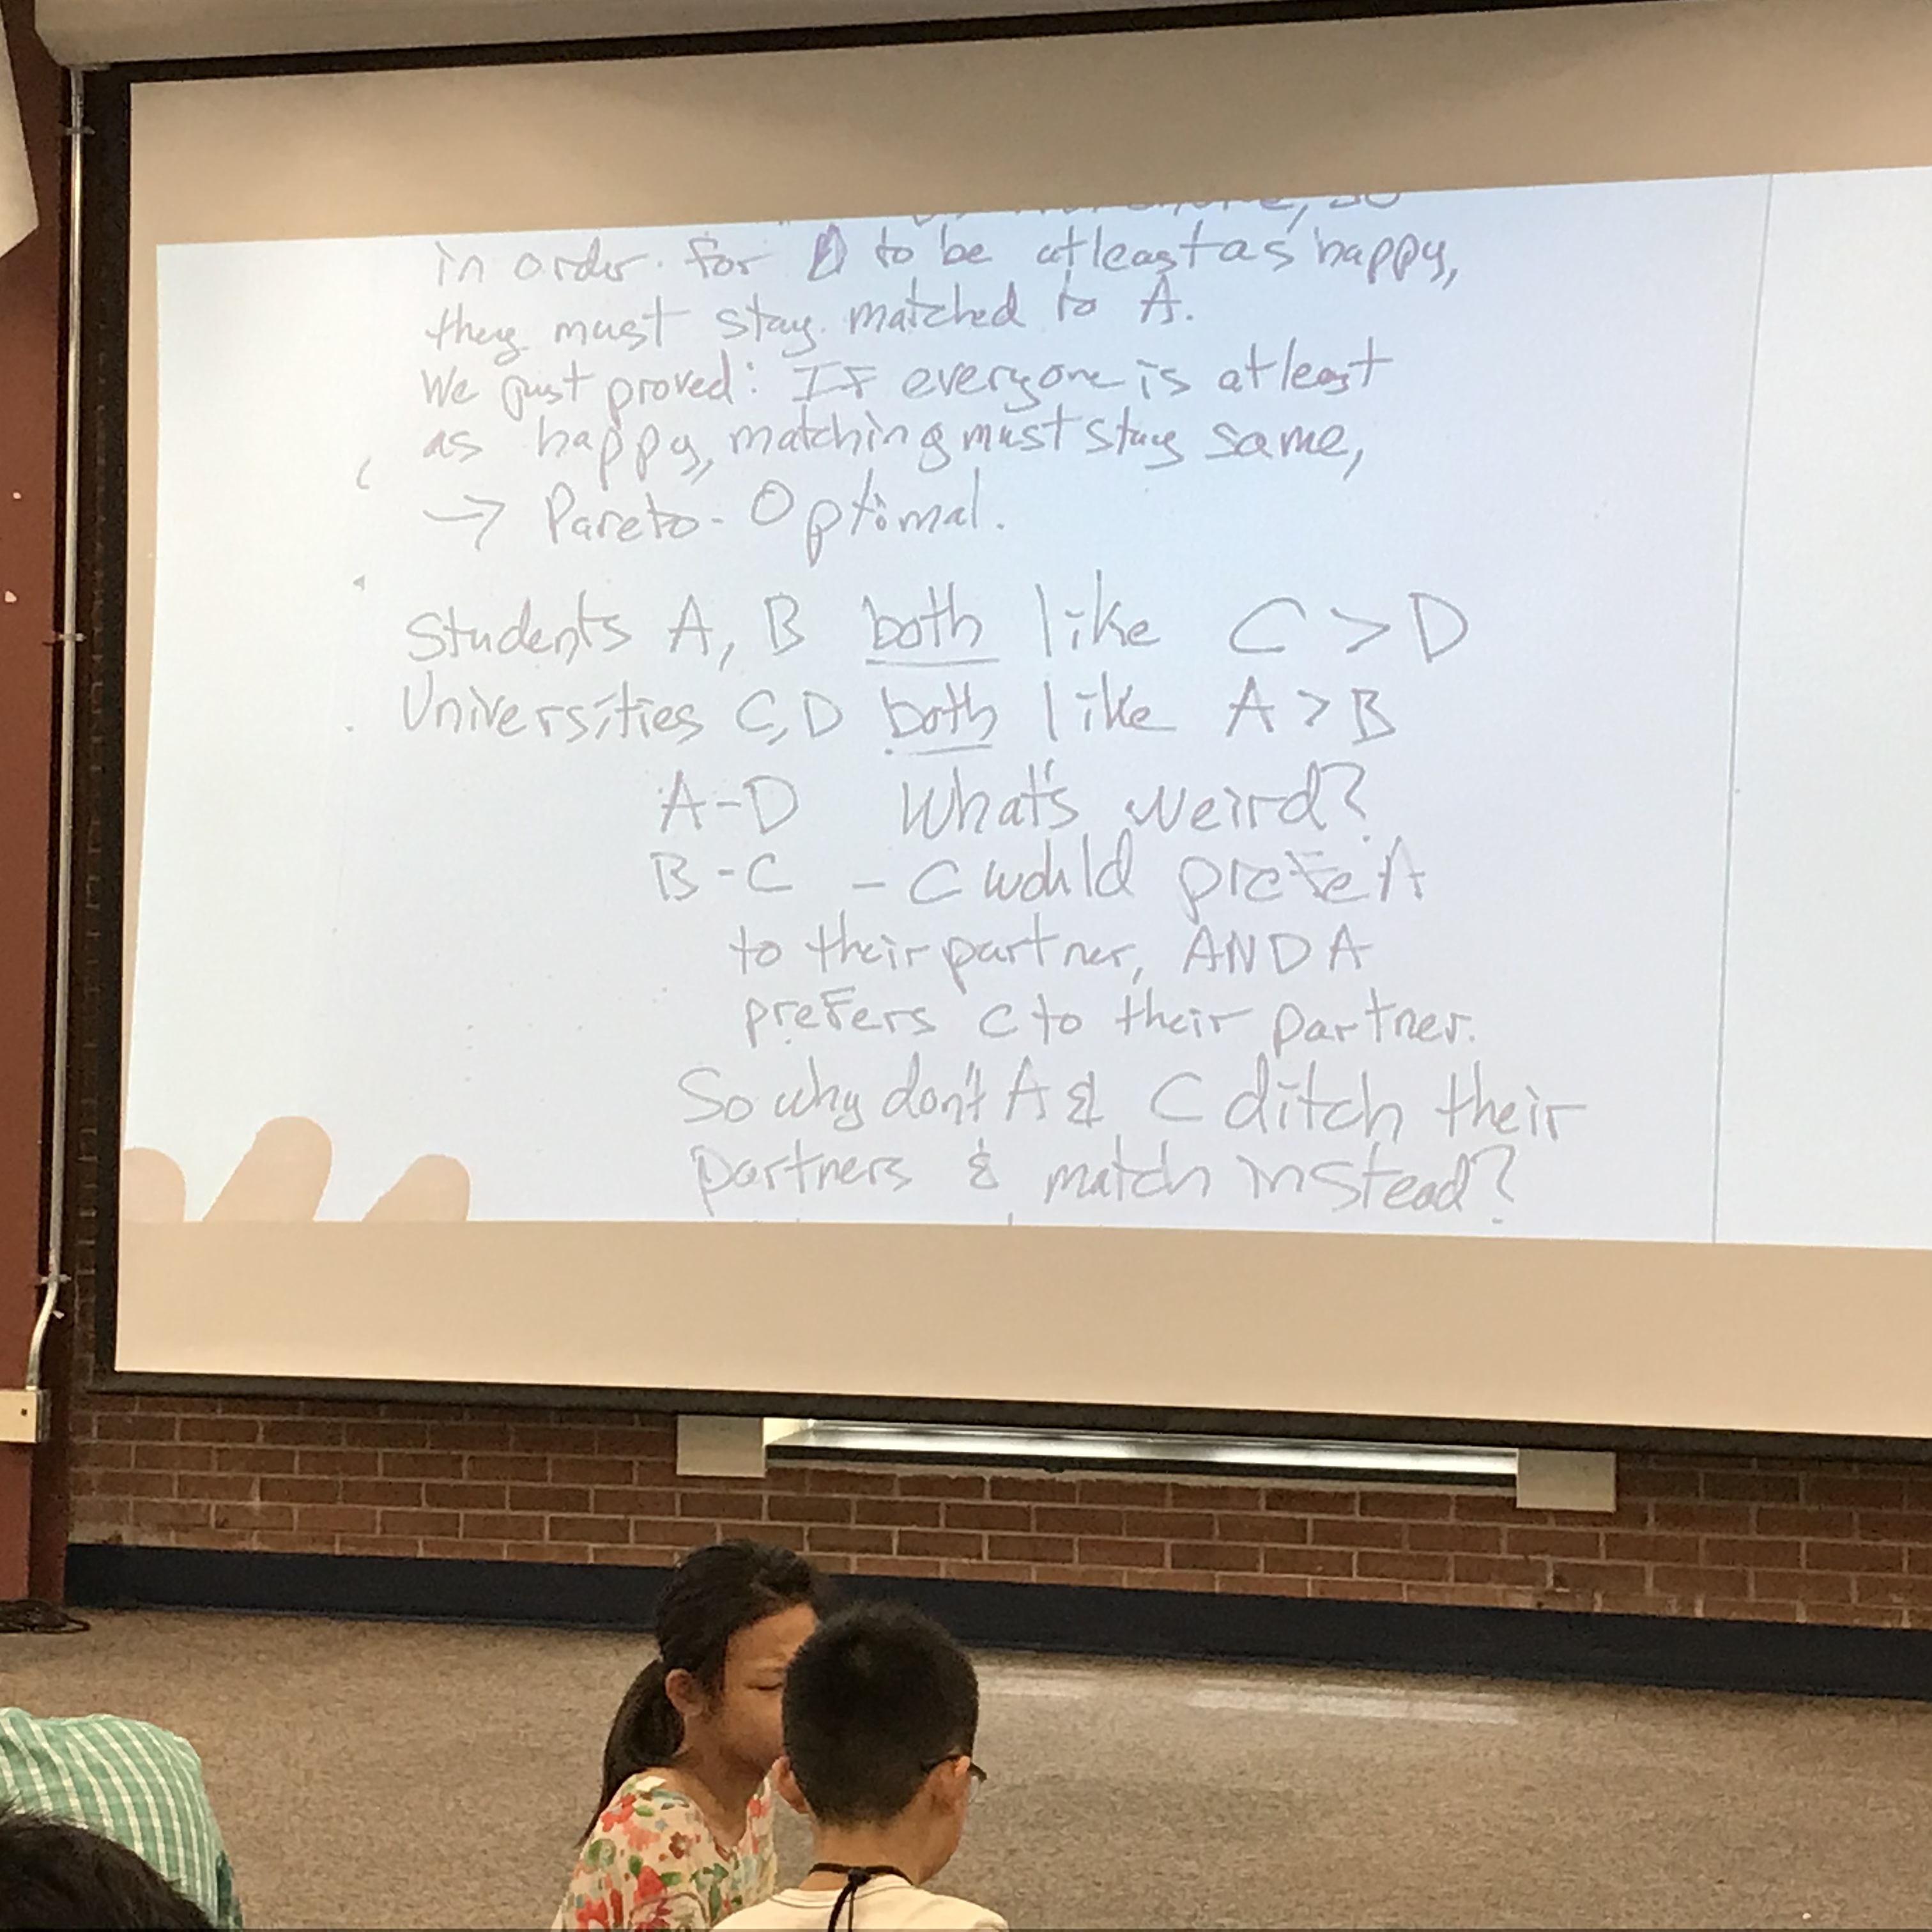 in order for D to be at least as happy,
they must stay matched to A.
We just proved: If everyone is at least
as happy, matching must stay same,
→ Pareto-Optimal.
Students A, B both like C > D
Universities C, D both like A > B
A-D What's weird?
B-C - C would prefer A
to their partner, AND A
prefers C to their partner.
So why don't A & C ditch their
partners & match instead?